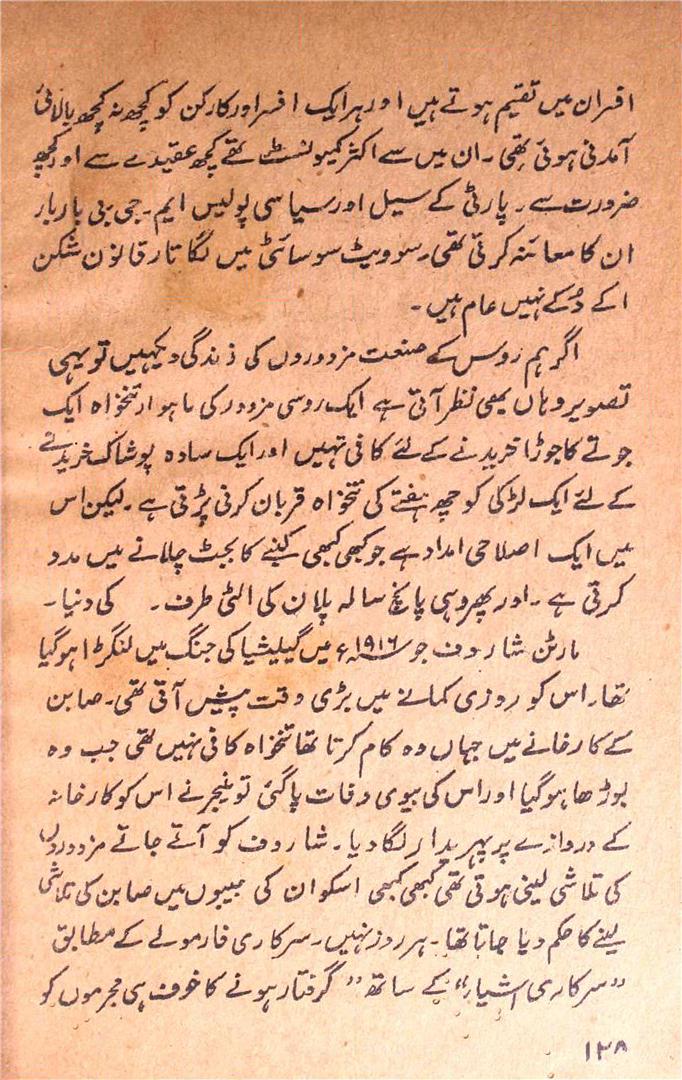 افسران میں تقیم ہوتے ہیں اور ہر ایک افسر اور کارکن کو کچھ نہ کچھ بالائی
آمدنی ہوئی تھی۔ ان میں سے اکثر کمیونسٹ تھے کچھ عقیدے سے اور کچھ
ضرورت سے۔ پارٹی کے سیل اور سیاسی پولیس ایم۔جی بی باربار
ان کا معائنہ کرتی تھی۔ سوویٹ سوسائٹی میں لگا تار قانون شکن
اکے دُکے نہیں عام ہیں۔
اگر ہم روس کے صنعت مزدوروں کی زندگی دیکہیں تو یہی
تصویر وہاں بھی نظر آتی ہے ایک روسی مزدور کی ماہوار تنخواہ ایک
جوتے کا جوڑا خریدنے کے لئے کافی نہیں اور ایک سادہ پوشاک خریدنے
کے لئے ایک لڑکی کو چھ ہفتے کی تنخواہ قربان کرنی پڑتی ہے۔ لیکن اس
میں ایک اصلاحی امداد ہے جو کبھی کبھی کنبے کا بجٹ چلانے میں مدد
کرتی ہے۔ اور پھر وہی پانچ سالہ پلان کی الٹی طرف۔ کی دنیا۔
مارٹن شاروف جو ۱۹۱۶ء میں گیلیشیا کی جنگ میں لنگڑا ہوگیا
تھا۔ اس کو روزی کمانے میں بڑی دقت پیش آتی تھی۔ صابن
کے کارخانے میں جہاں وہ کام کرتا تھا تنخواہ کافی نہیں تھی جب وہ
بوڑھا ہوگیا اور اس کی بیوی وفات پاگئی تو منیجر نے اس کو کارخانہ
کے دروازے پر پہریدار لگا دیا۔ شاروف کو آتے جاتے مزدوروں
کی تلاشی لینی ہوتی تھی کبھی کبھی اسکو ان کی جیبوں میں صابن کی تلاشی
لینے کا حکم دیا جاتا تھا۔ ہر روز نہیں۔ سرکاری فارمولے کے مطابق
”سرکاری اشیار“ کے ساتھ ” گرفتار ہونے کا خوف ہی مجرموں کو
۱۳۸